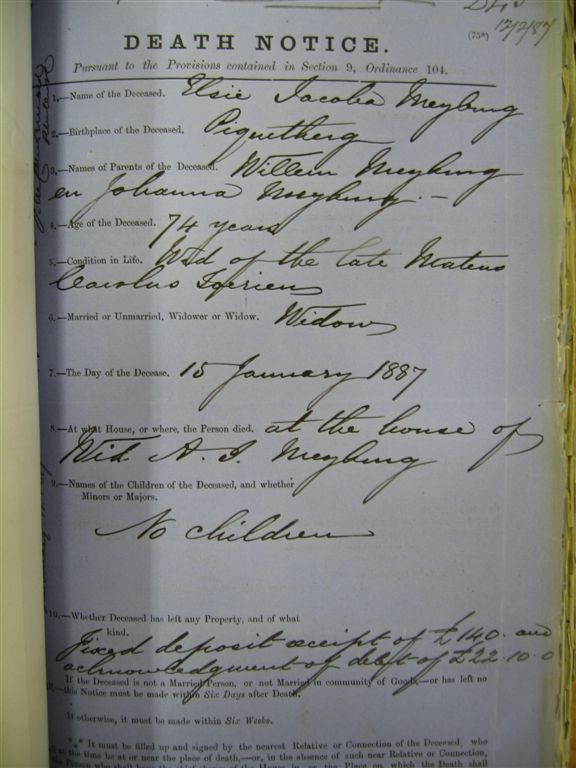 12/2/87
DEATH NOTICE. (75a)
Pursuant to the Provisions contained in Section 9, Ordinance 104.
1.—Name of the Deceased. Elsie Jacoba Meyburg
2.—Birthplace of the Deceased. Piquetberg
3.—Names of Parents of the Deceased. Willem Meyburg
en Johanna Meyburg.—
4.—Age of the Deceased. 74 years
5.—Condition in Life. Wid of the late Mateus
Carolus Toerien
6.—Married or Unmarried, Widower or Widow. Widow
7.—The Day of the Decease. 15 January 1887
8.—At what House, or where, the Person died. at the house of
Wid. A. J. Meyburg
9.—Names of the Children of the Deceased, and whether
Minors or Majors.
No children
10.—Whether Deceased has left any Property, and of what
kind.
Fixed deposit receipt of £140. and
acknowledgment of debt of £22.10.0
If the Deceased is not a Married Person, or not Married in community of Goods,—or has left no
this Notice must be made within Six Days after Death.
If otherwise, it must be made within Six Weeks.
*** It must be filled up and signed by the nearest Relative or Connection of the Deceased, who
at the time be at or near the place of death,—or, in the absence of such near Relative or Connection,
the Person who shall have the chief charge of the House in, or the Place on, which the Death shall